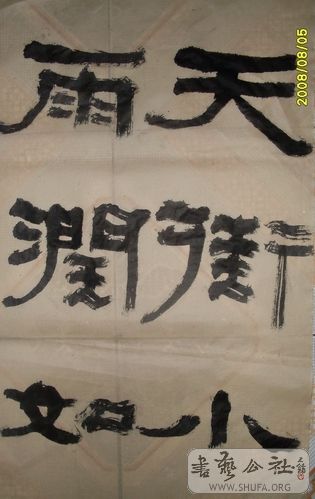 天街小
雨潤如
2008/08/05
書藝公社
WWW.SHUFA.ORG